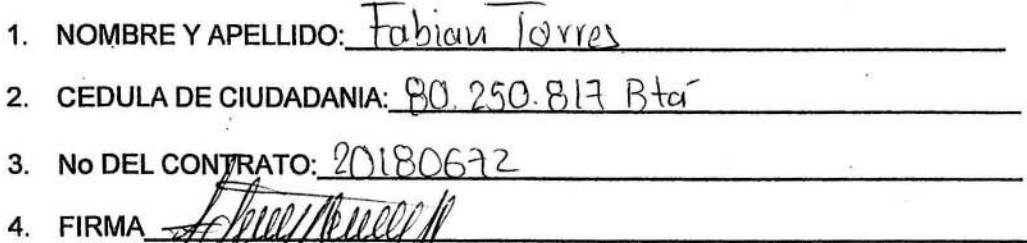 1. NOMBRE Y APELLIDO: Fabian Torres
2. CEDULA DE CIUDADANIA: 80.250.817 Btá
3. No DEL CONTRATO: 20180672
4. FIRMA